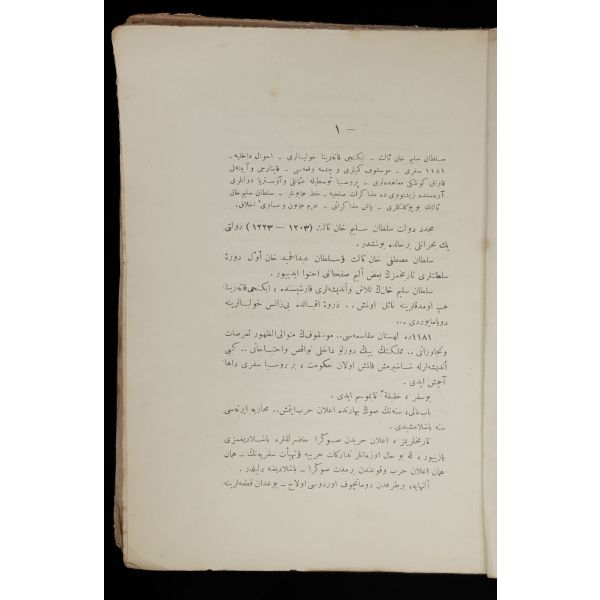 — ١
سلطان سليم خان ثالث ـ ايكنجى قاترينا خولياسى ـ احوال داخليه ـ
١١٨١ سفرى ـ موسقوف كبارى و چشمه وقعه‌سى ـ قاينارجى و آينه‌لى
قاواق كوشكى معاهده‌لرى ـ پروسيا توسطيله عثمانلى و آوستريا دولتلرى
آره‌سنده زشتووى ده مذاكرات صلحيه ـ خط همايونلر ـ سلطان سليم خان
ثالثك ـ ياش مذاكراتى ـ عزم همايون و مساوئ اخلاق.
مجدد دولت سلطان سليم خان ثالث (١٢٠٣ — ١٢٢٣) دولتى
پك بحرانلى برحالده بولمشدر.
سلطان مصطفى خان ثالث وسلطان عبدالحميد خان اول دورۀ
سلطنتلرى تاريخمزك بعض اليم صفحاتنى احتوا ايدييور.
سلطان سليم خانك تلاش وانديشه‌لرى قارشيسنده، ايكنجى قاترينا
هپ اومدقلرينه نائل اولمش.. ذروۀ اقبالده بى‌زانس خوليالرينه
دويامايوردى...
١١٨١ده لهستان مقاسمه‌سى.. موسقوفك متوالى‌الظهور تعرضات
وتجاوزاتى.. مملكتك بيك دورلو داخلى نواقص واحتياجاتى.. كبى
انديشه‌لرله شاشيرمش قالمش اولان حكومت، بر روسيا سفرى داها
آچمش ايدى.
بوسفر، حقيقةً ايدى.
باب‌عالى، سنه‌نك صوك بهارنده اعلان حرب ايتمش.. محاربه ايرته‌سى
سنه باشلامشيدى.
تاريخلريمز، اعلان حربدن صوكرا حاضرلقلره باشلاديغمزى
يازييور، كه بو حال اوزمانلر تداركات حربيه وتهيأت سفريه‌نك ـ همان
همان اعلان حرب وقوعندن برمدت صوكرا ـ باشلاديغنه دليلدر.
النهايه، برطرفدن رومانچوف اوردوسى افلاخ ـ بوغدان قطعه‌لرينه